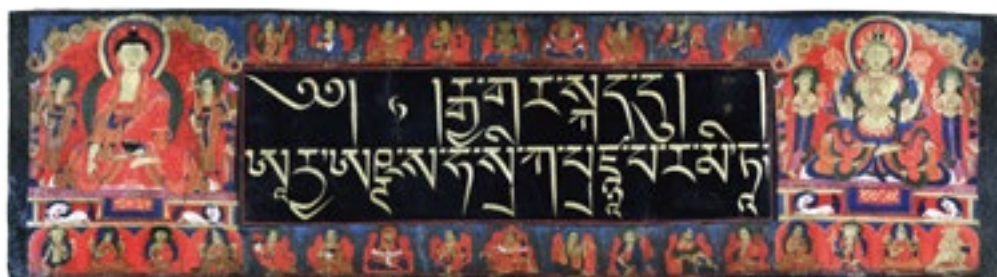 ༄༅། ། །རྒྱ་གར་སྐད་དུ། །
ཨཱརྱ་ཨཥྚ་ས་ཧ་སྲི་ཀ་པྲཛྙཱ་པ་ར་མི་ཏཱ